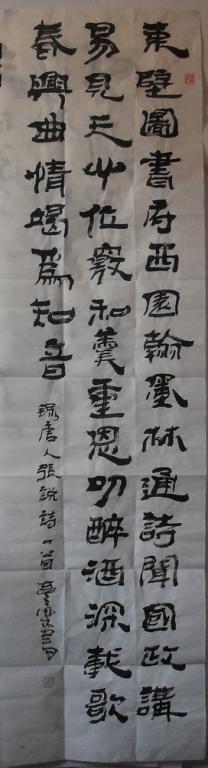 東壁圖書府西園翰墨林通詩聞國政講
易見天心位竊和羹重恩叨醉酒深載歌
春興曲情竭為知音
録唐人張說詩一首